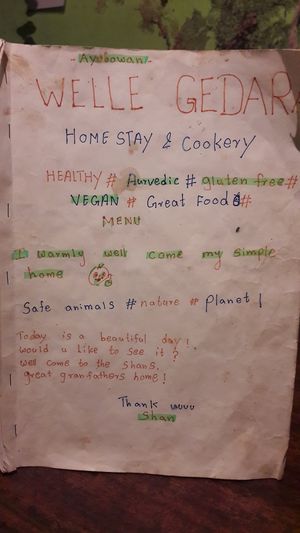 - Ayubowan -
WELLE GEDAR
HOME STAY & Cookery
HEALTHY # Aurvedic # gluten free #
VEGAN # Great Food #
MENU
I warmly well come my simple
home
Safe animals # nature # planet !
Today is a beautiful day !
would u like to see it ?
well come to the shans,
great grandfathers home !
Thank uuuu
Shan